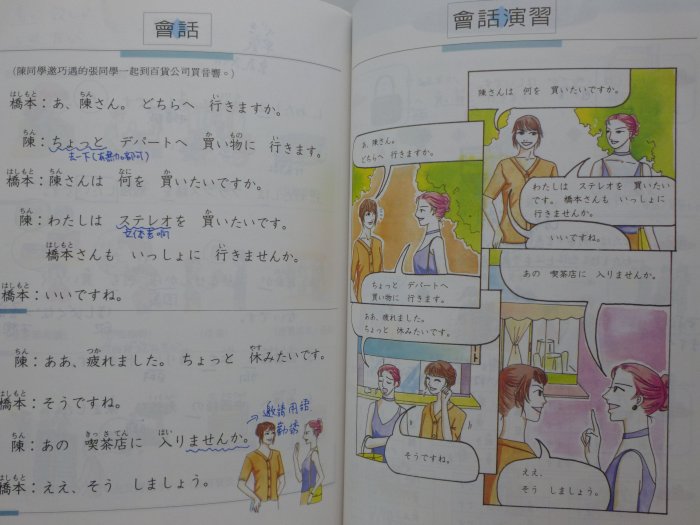 會話
(陳同學邀巧遇的張同學一起到百貨公司買音響。)
橋本：あ、陳さん。 どちらへ 行きますか。
陳：ちょっと デパートへ 買い物に 行きます。
橋本：陳さんは 何を 買いたいですか。
陳：わたしは ステレオを 買いたいです。
橋本さんも いっしょに 行きませんか。
橋本：いいですね。
陳：ああ、疲れました。 ちょっと 休みたいです。
橋本：そうですね。
邀請用語
勸誘
陳：あの 喫茶店に 入りませんか。
橋本：ええ、そう しましょう。
會話演習
陳さんは 何を 買いたいですか。
わたしは ステレオを 買いたい
です。 橋本さんも いっしょに
行きませんか。
いいですね。
あ、陳さん。
どちらへ 行きますか。
ちょっと デパートへ
買い物に 行きます。
ああ、疲れました。
ちょっと 休みたいです。
そうですね。
あの 喫茶店に 入りませんか。
ええ、
そう しましょう。